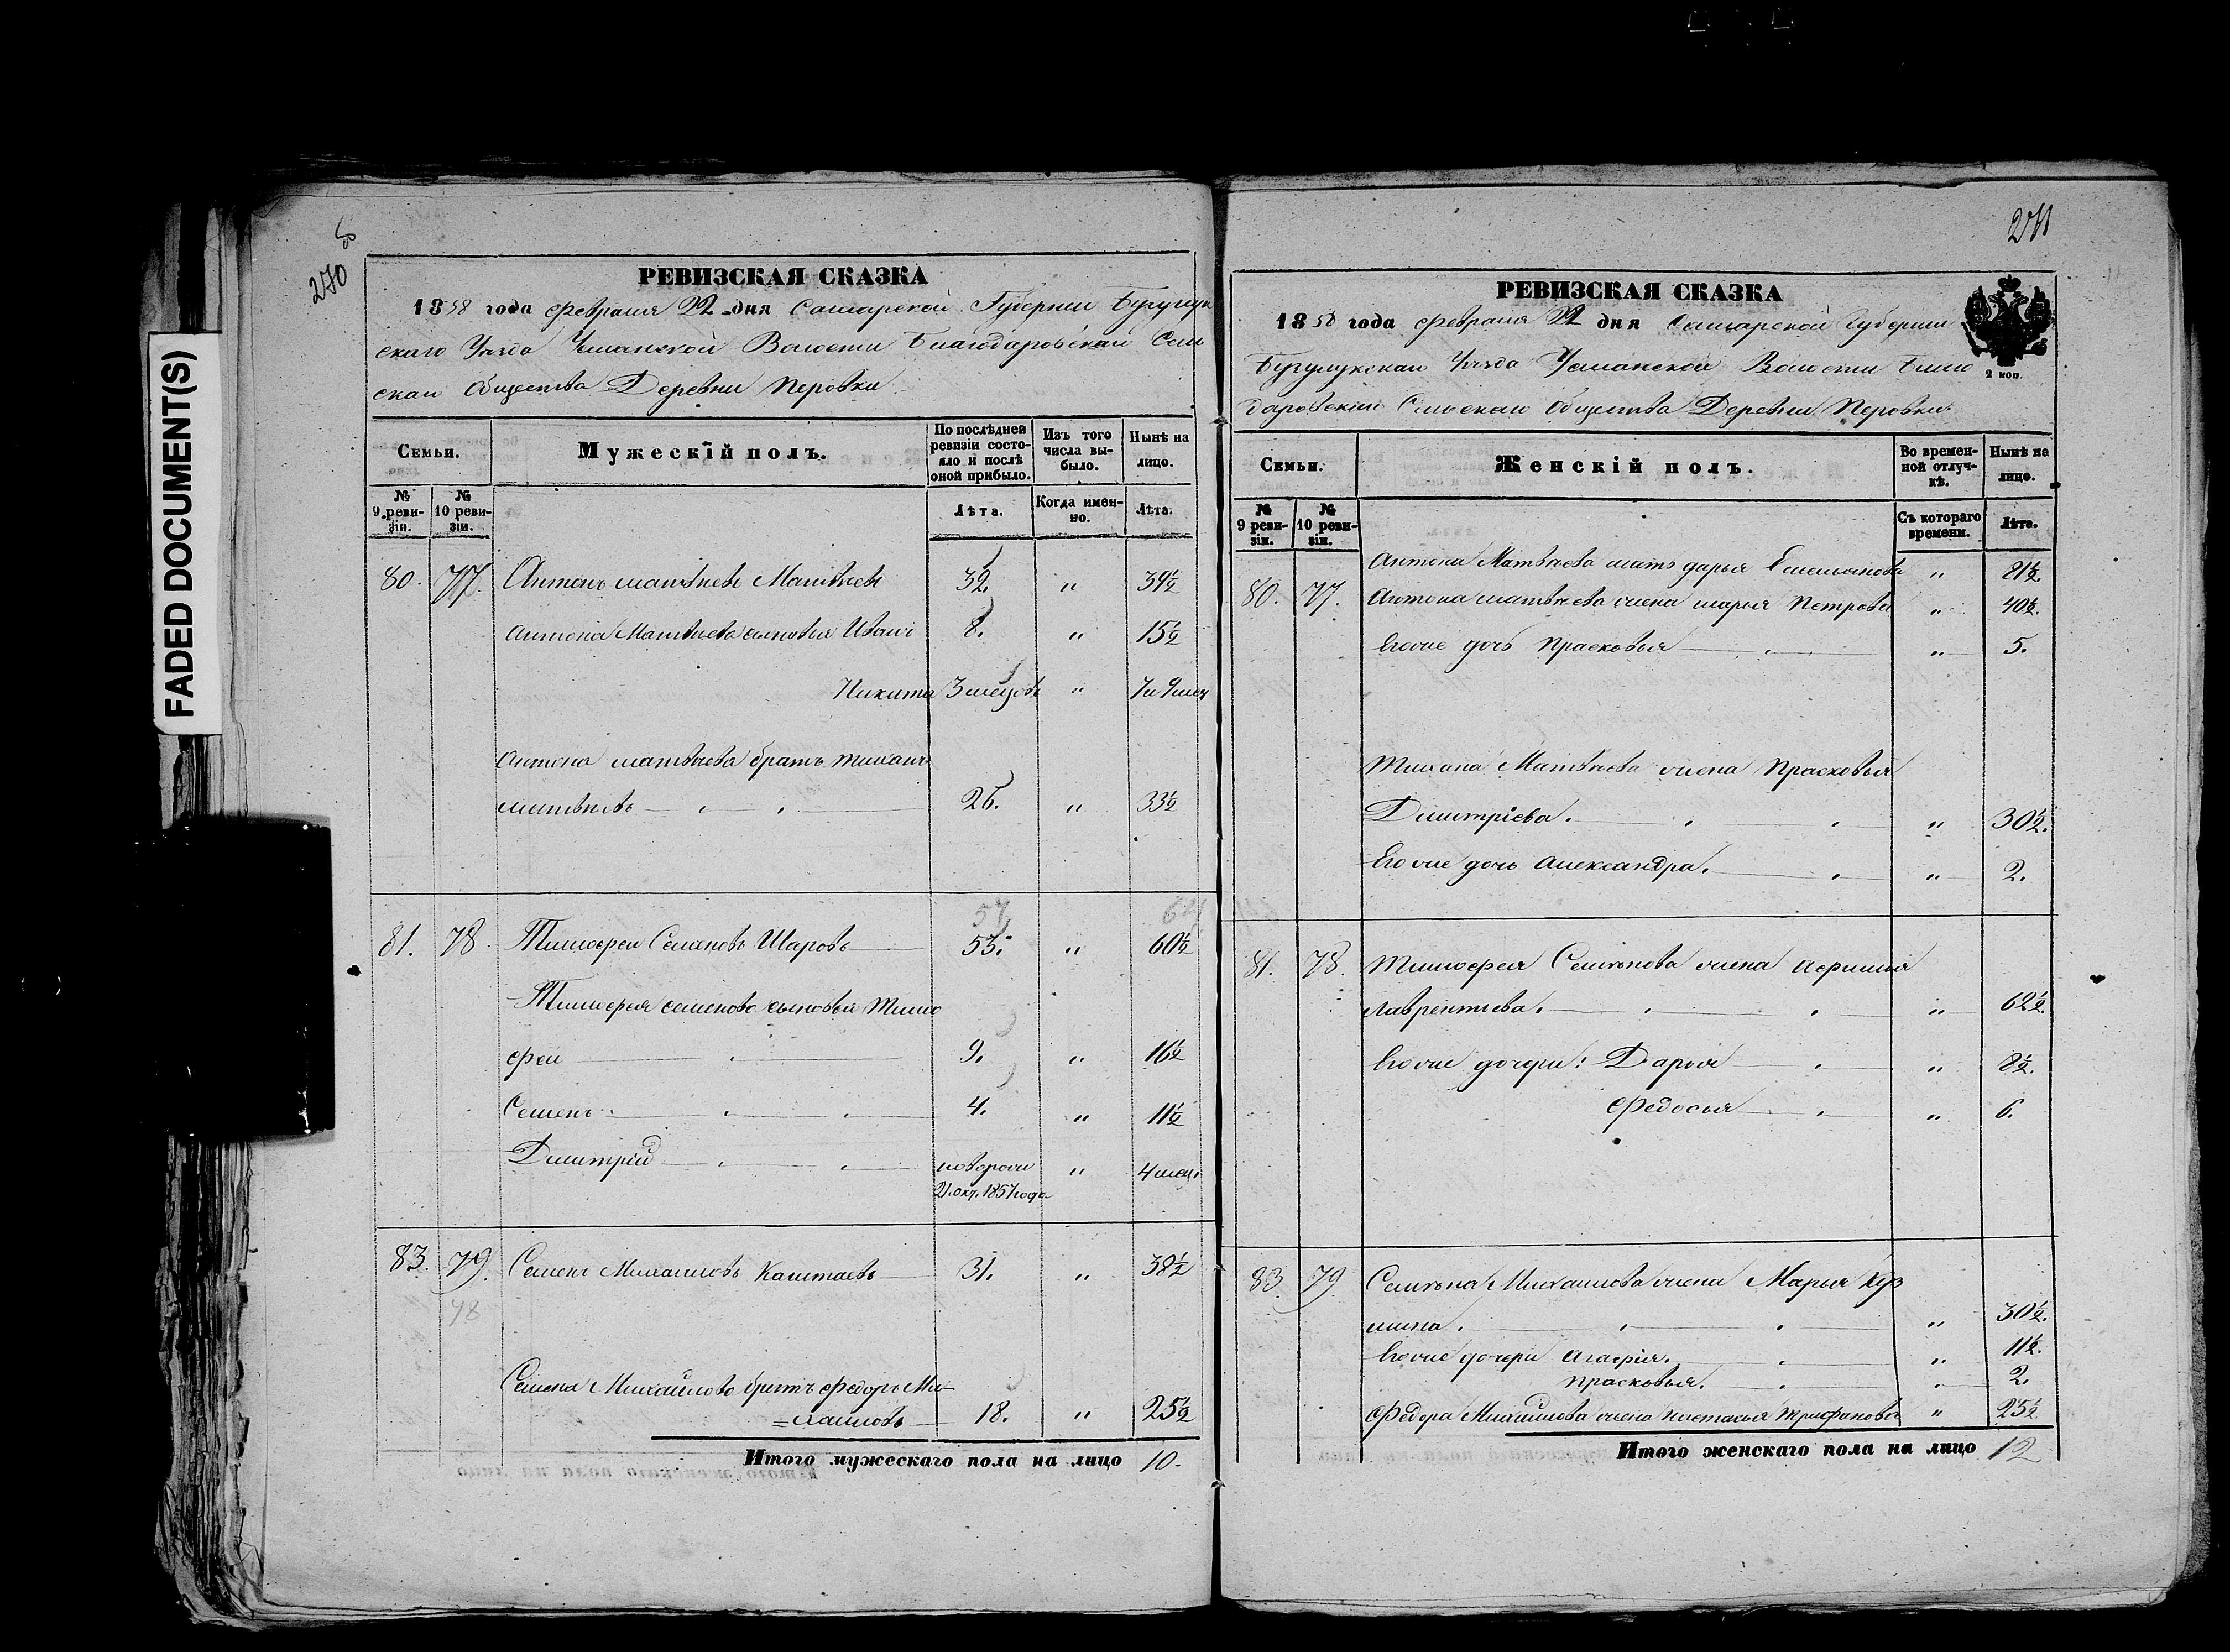 FADED DOCUMENT(S)
270
РЕВИЗСКАЯ СКАЗКА
1858 года Февраля 22 дня Самарской Губерніи Бугурук
скаго Уѣзда Усманской Волости Благодаровскаго Сель
скаго Общества Деревни Перовки
Семьи.
Мужескій полъ.
По послѣдней ревизіи состояло и послѣ оной прибыло.
Изъ того числа выбыло.
Нынѣ на лицо.
№ 9 ревизіи.
№ 10 ревизіи.
Лѣта.
Когда именно.
Лѣта.
80. 77. Антонъ Матвѣевъ Матвѣевъ 32. " 39½
Антона Матвѣева сыновья Иванъ 8. " 15½
Никита 3 мѣсяцовъ " 7 и 9 мец
Антона Матвѣева братъ
Матвѣевъ 26. " 33½
57 64
81. 78. Тимофей Семеновъ Шаровъ 53. " 60½
Тимофея Семенова сыновья Тимо
фей 9. " 16½
Семенъ 4. " 11½
Димитрій новорож " 4 мец.
21. окт. 1857 года
83. 79. Семенъ Михайловъ Каштаевъ 31. " 38½
78
Семена Михайлова братъ Федоръ Ми-
=хайловъ 18. " 25½
Итого мужескаго пола на лицо 10.
271
РЕВИЗСКАЯ СКАЗКА
1858 года Февраля 22 дня Самарской Губерніи
2 коп.
Бугурукскаго Уѣзда Усманской Волости Благо
даровскаго Сельскаго Общества Деревни Перовки
Семьи.
Женскій полъ.
Во временной отлучкѣ.
Нынѣ на лицо.
№ 9 ревизіи.
№ 10 ревизіи.
Съ котораго времени.
Лѣта.
Антона Матвѣева мать Дарья Емельянова " 81½.
80. 77. Антона Матвѣева жена Марья Петрова " 40½.
Его же дочь Прасковья " 5.
Матвѣева жена Прасковья
Димитріева. " 30½.
Его же дочь Александра. " 2.
81. 78. Тимофея Семенова жена Афимья
Лаврентьева. " 62½.
Его же дочери: Дарья " 8½.
Федосья " 6.
83. 79. Семена Михайлова жена Марья Куз
мина. " 30½.
Его же дочери Агафія. " 11½.
Прасковья. " 2.
Федора Михайлова жена Настасья Трифанова " 25½
Итого женскаго пола на лицо 12